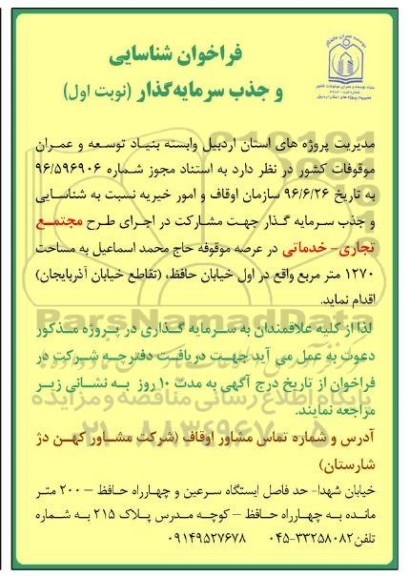 فراخوان شناسایی
و جذب سرمایه‌گذار (نوبت اول)
مدیریت پروژه های استان اردبیل وابسته بنیاد توسعه و عمران
موقوفات کشور در نظر دارد به استناد مجوز شماره ۹۶/۵۹۶۹۰۶
به تاریخ ۹۶/۶/۲۶ سازمان اوقاف و امور خیریه نسبت به شناسایی
و جذب سرمایه گذار جهت مشارکت در اجرای طرح مجتمع
تجاری- خدماتی در عرصه موقوفه حاج محمد اسماعیل به مساحت
۱۲۷۰ متر مربع واقع در اول خیابان حافظ، (تقاطع خیابان آذربایجان)
اقدام نماید.
لذا از کلیه علاقمندان به سرمایه گذاری در پروژه مذکور
دعوت به عمل می آید جهت دریافت دفترچه شرکت در
فراخوان از تاریخ درج آگهی به مدت ۱۰ روز به نشانی زیر
مراجعه نمایند.
آدرس و شماره تماس مشاور اوقاف (شرکت مشاور کهن دژ
شارستان)
خیابان شهدا- حد فاصل ایستگاه سرعین و چهارراه حافظ – ۲۰۰ متر
مانده به چهارراه حافظ – کوچه مدرس پلاک ۲۱۵ به شماره
تلفن ۳۳۲۵۸۰۸۲-۰۴۵ ۰۹۱۴۹۵۲۷۶۷۸
ParsNamadData
پایگاه اطلاع رسانی مناقصه و مزایده
۰۲۱-۸۸۳۴۹۶۷۰-۵